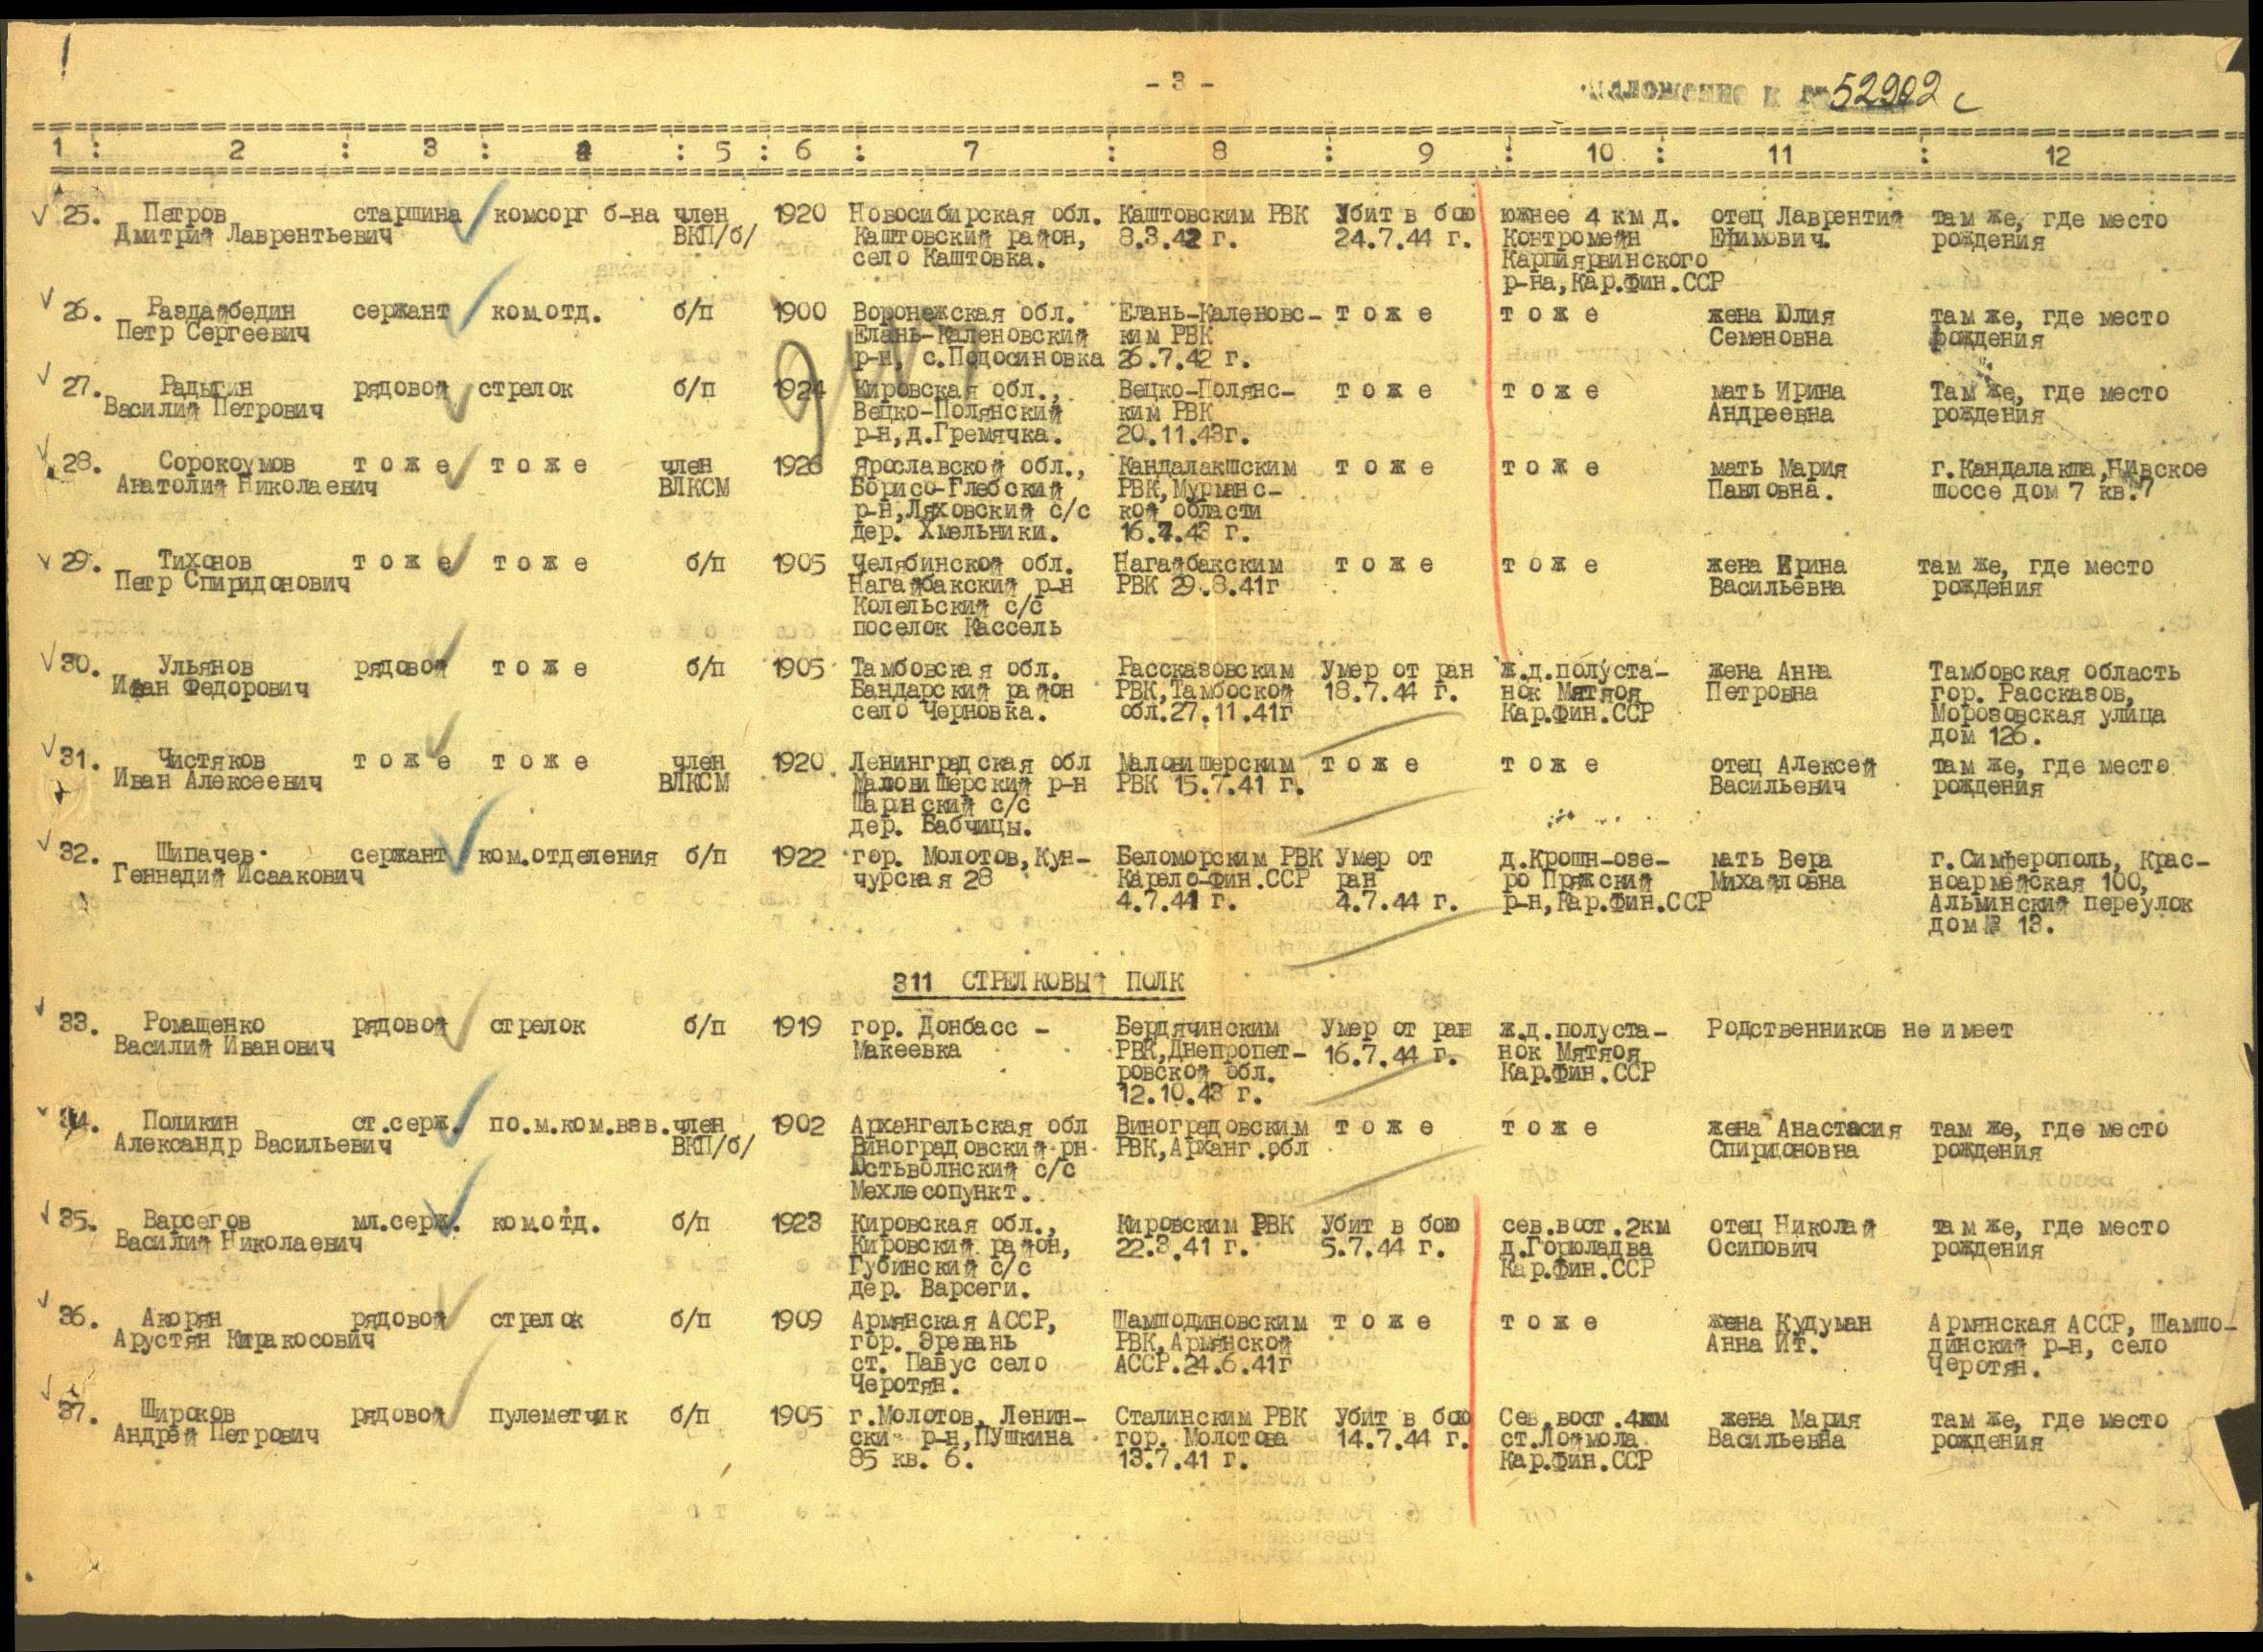 - 3 -
52902 с
1 : 2 : 3 : 4 : 5 : 6 : 7 : 8 : 9 : 10 : 11 : 12
25. Петров старшина комсорг б-на член 1920 Новосибирская обл. Каштовским РВК Убит в бою южнее 4 км д. отец Лаврентий там же, где место
Дмитрий Лаврентьевич ВКП/б/ Каштовский район, 8.3.42 г. 24.7.44 г. Контромейн Ефимович. рождения
село Каштовка. Карпиярвинского
р-на, Кар.Фин.ССР
26. Раздайбедин сержант ком.отд. б/п 1900 Воронежская обл. Елань-Каленовс- т о ж е т о ж е жена Юлия там же, где место
Петр Сергеевич Елань-Каленовский ким РВК Семеновна рождения
р-н, с.Подосиновка 26.7.42 г.
27. Радыгин рядовой стрелок б/п 1924 Кировская обл., Вецко-Полянс- т о ж е т о ж е мать Ирина Там же, где место
Василий Петрович Вецко-Полянский ким РВК Андреевна рождения
р-н, д.Гремячка. 20.11.43г.
28. Сорокоумов т о ж е т о ж е член 1926 Ярославской обл., Кандалакшским т о ж е т о ж е мать Мария г.Кандалакша, Нивское
Анатолий Николаевич ВЛКСМ Борисо-Глебский РВК, Мурманс- Павловна. шоссе дом 7 кв.7
р-н, Ляховский с/с кой области
дер. Хмельники. 16.7.43 г.
29. Тихонов т о ж е т о ж е б/п 1905 Челябинской обл. Нагайбакским т о ж е т о ж е жена Ирина там же, где место
Петр Спиридонович Нагайбакский р-н РВК 29.8.41г Васильевна рождения
Колельский с/с
поселок Кассель
30. Ульянов рядовой т о ж е б/п 1905 Тамбовская обл. Рассказовским Умер от ран ж.д.полуста- жена Анна Тамбовская область
Иван Федорович Бандарский район РВК, Тамбоской 18.7.44 г. нок Мятяоя Петровна гор. Рассказов,
село Черновка. обл.27.11.41г Кар.Фин.ССР Морозовская улица
дом 126.
31. Чистяков т о ж е т о ж е член 1920 Ленинградская обл Маловишерским т о ж е т о ж е отец Алексей там же, где место
Иван Алексеевич ВЛКСМ Маловишерский р-н РВК 15.7.41 г. Васильевич рождения
Шарнский с/с
дер. Бабчицы.
32. Шипачев сержант ком.отделения б/п 1922 гор. Молотов, Кун- Беломорским РВК Умер от д.Крошн-озе- мать Вера г.Симферополь, Крас-
Геннадий Исаакович чурская 28 Карело-Фин.ССР ран ро Пряжский Михайловна ноармейская 100,
4.7.41 г. 4.7.44 г. р-н, Кар.Фин.ССР Альминский переулок
дом № 13.
311 СТРЕЛКОВЫЙ ПОЛК
33. Ромащенко рядовой стрелок б/п 1919 гор. Донбасс - Бердячинским Умер от ран ж.д.полуста- Родственников не имеет
Василий Иванович Макеевка РВК, Днепропет- 16.7.44 г. нок Мятяоя
ровской обл. Кар.Фин.ССР
12.10.43 г.
34. Поликин ст.серж. по.м.ком.взв. член 1902 Архангельская обл Виноградовским т о ж е т о ж е жена Анастасия там же, где место
Александр Васильевич ВКП/б/ Виноградовский рн РВК, Арханг.обл Спиридоновна рождения
Юстьволнский с/с
Мехлесопункт.
35. Варсегов мл.серж. ком.отд. б/п 1923 Кировская обл., Кировским РВК Убит в бою сев.вост.2км отец Николай там же, где место
Василий Николаевич Кировский район, 22.3.41 г. 5.7.44 г. д.Горюладва Осипович рождения
Губинский с/с Кар.Фин.ССР
дер. Варсеги.
36. Акорян рядовой стрелок б/п 1909 Армянская АССР, Шамподиновским т о ж е т о ж е жена Кудуман Армянская АССР, Шампо-
Арустян Киракосович гор. Эревань РВК, Армянской Анна Ит. динский р-н, село
ст. Павус село АССР.24.6.41г Черотян.
Черотян.
37. Широков рядовой пулеметчик б/п 1905 г.Молотов, Ленин- Сталинским РВК Убит в бою Сев.вост.4км жена Мария там же, где место
Андрей Петрович ски р-н, Пушкина гор. Молотова 14.7.44 г. ст.Лоймола Васильевна рождения
85 кв. 6. 13.7.41 г. Кар.Фин.ССР